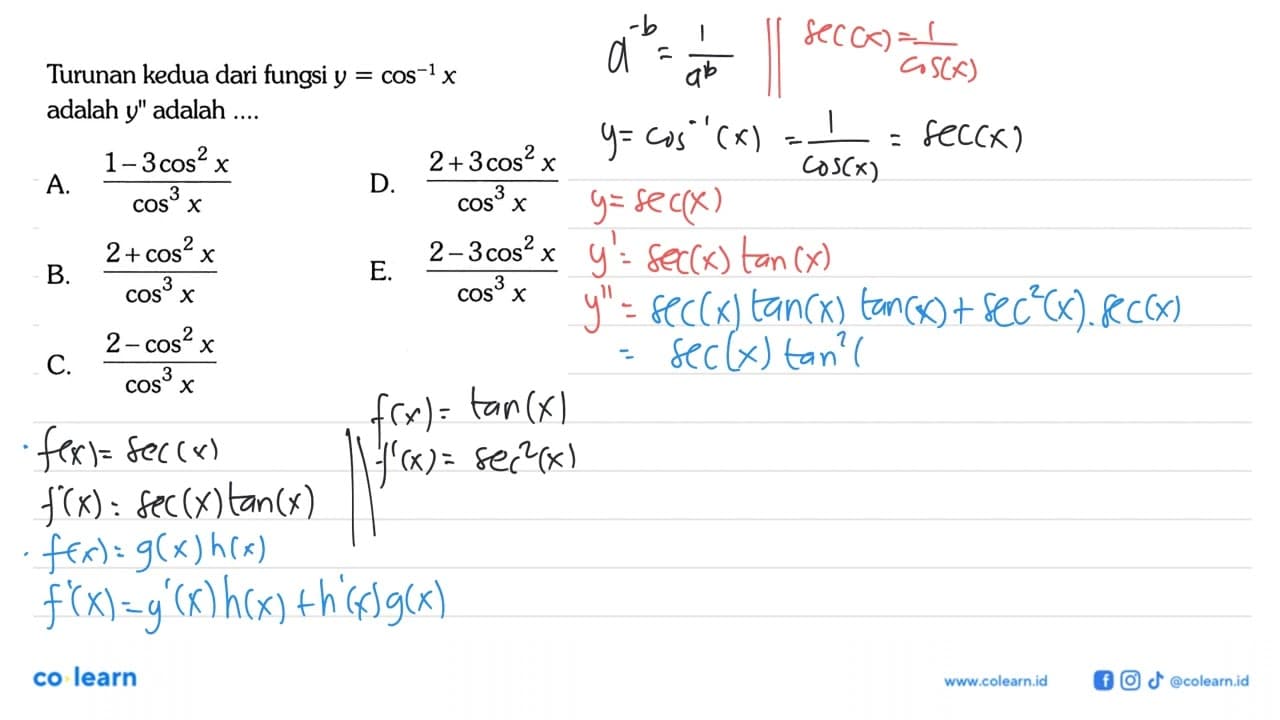 Turunan kedua dari fungsi y = cos⁻¹ x
adalah y" adalah ....
A. (1 – 3 cos² x)/(cos³ x)
B. (2 + cos² x)/(cos³ x)
C. (2 – cos² x)/(cos³ x)
D. (2 + 3 cos² x)/(cos³ x)
E. (2 – 3 cos² x)/(cos³ x)
a⁻ᵇ = 1/aᵇ || sec(x) = 1/cos(x)
y = cos⁻¹(x) = 1/cos(x) = sec(x)
y = sec(x)
y' = sec(x) tan(x)
y" = sec(x) tan(x) tan(x) + sec²(x). sec(x)
= sec(x) tan²(
· f(x) = sec(x)
f'(x) = sec(x) tan(x)
f(x) = tan(x)
f'(x) = sec²(x)
· f(x) = g(x) h(x)
f'(x) = g'(x) h(x) + h'(x) g(x)
co learn
www.colearn.id
@colearn.id